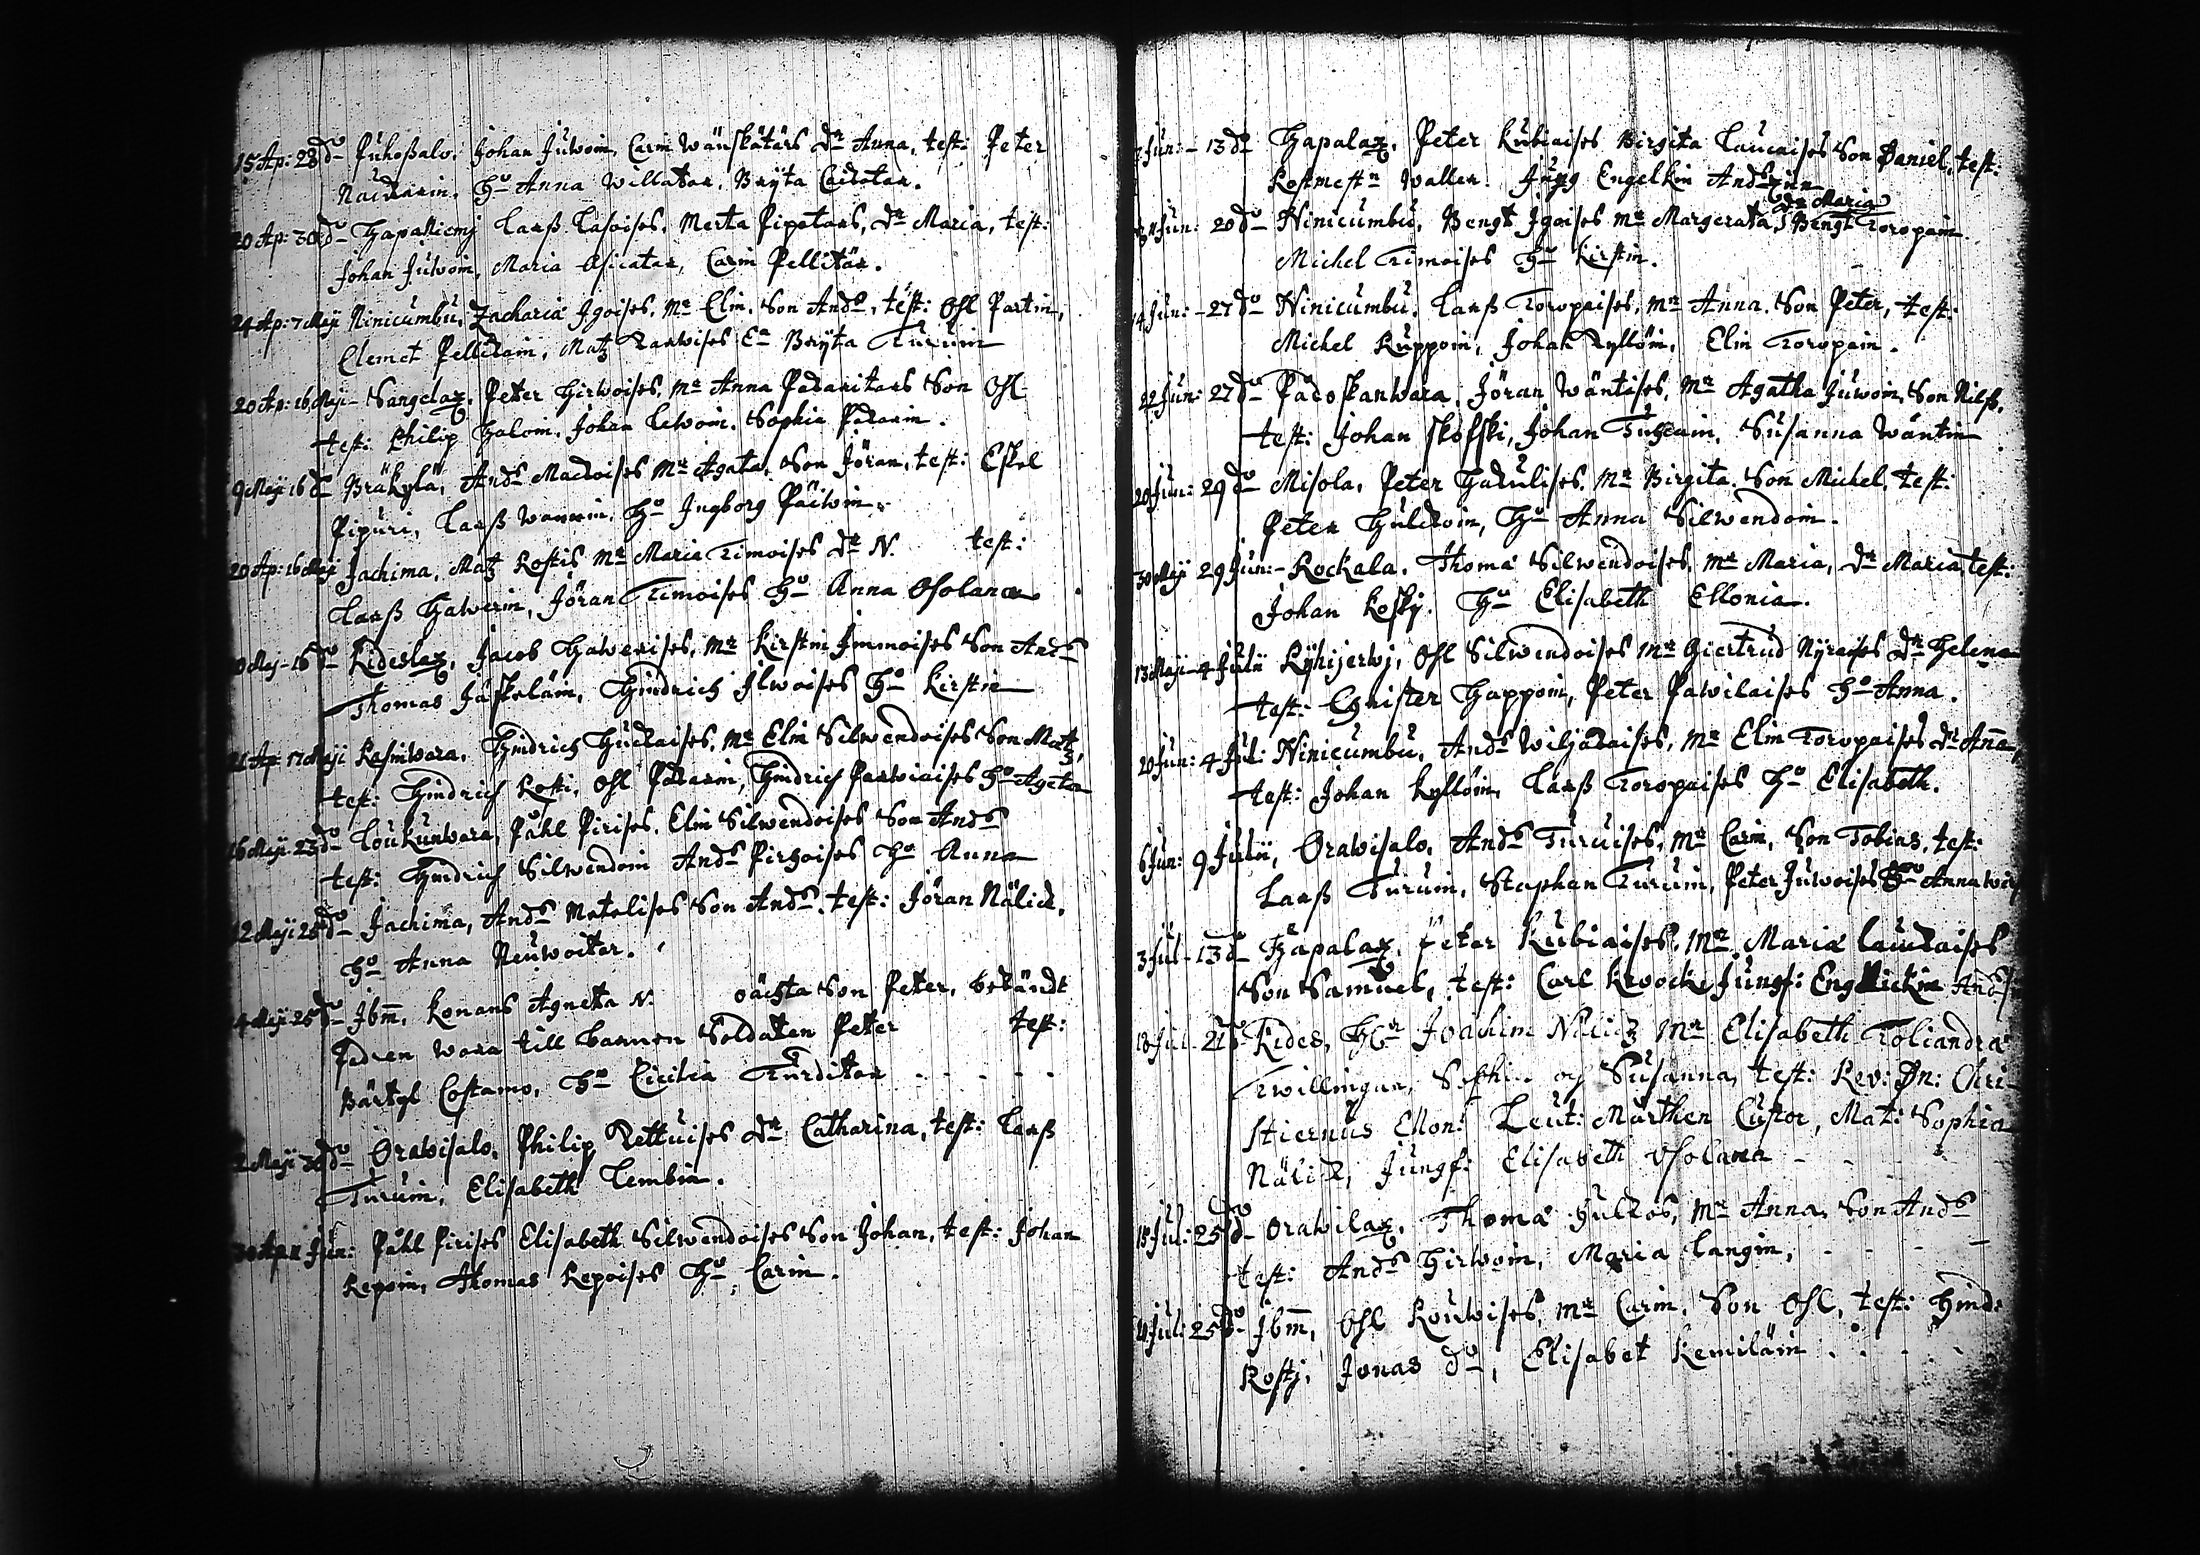 15 Ap: 23 do Puhoßalo, Johan Juwoin, Carin Wänskätärs dr Anna, test: Peter
Naukarin. Ho Anna Willatar, Brÿta
20 Ap: 30 do Hapaniemj Larß Lasoises, Merta Pipotars, dr Maria, test:
Johan Juwoin, Maria Asicatar, Carin Pellitär.
24 Ap: 7 Maji Ninicumbu, Zacharia Igoises, Mr Elin, Son Ands, test: Ohl Partin,
Clemet Pellikain, Matz Karwises Ea Brÿta Turuin
20 Ap: 16 Maji Sangelax, Peter Hirwoises, Mr Anna Pakaritars Son Ohl
test: Philip Haloin, Johan Lewoin, Sophia Pakarin.
9 Maji 16 do Bräkylä, Ands Mackoises Mr Agata, Son Jöran, test: Eskel
Pipuri, Larß Wannin, Ho Ingborg Päiwin.
20 Ap: 16 Maji Jachima, Matz Rostis Mr Maria Timoises dr N. test:
Larß Hawerin, Jöran Timoises Ho Anna Osolana
16 do Rideslax, Jacob Hawerises, Mr Kirstin Immoises Son Ands
Thomas Jäskeläin, Hindrich Ilwoises Ho Kirstin
21 Ap: 17 Maji Kasinwara, Hindrich Huckaises, Mr Elin Silwendoises Son Matz,
test: Hindrich Rosti, Ohl Pakarin, Hindrich Parwiaises Ho Agata
16 Maji 23 do Loukunwara, Påhl Pirises, Elin Silwendoises Son Ands
test: Hindrich Silwendoin Ands Pirhoises Ho Anna
12 Maji 25 do Jachima, Ands Matelises Son Ands, test: Jöran Nälick,
Ho Anna Neuwoiter.
4 Maji 25 do Ibm, Konans Agneta N. oächta Son Peter, bekändt
Fadren wara till barnen Soldaten Peter test:
Bärtyl Costamo, Ho Cicilia Turditar
Maji 30 do Orawisalo, Philip Rettuises dr Catharina, test: Larß
Turuin, Elisabeth Lembin.
30 Jun: Påhl Pirises Elisabeth Silwendoises Son Johan, test: Johan
Repoin, Thomas Repoises Ho Carin.
Jun: 13 do Hapalax, Peter Kubiaises Birgita Laucaises Son Daniel, test:
Postmestr Waller. Jung Engelkin
dr Maria
Jun: 20 do Ninicumbu, Bengt Igoises Mr Margerata, Bengt Toropain
Michel Timoises Ho Kirstin.
Jun: 27 do Ninicumbu, Larß Toropaises, Mr Anna, Son Peter, test:
Michel Ruppoin, Johan Kyllöin, Elin Toropain.
22 Jun: 27 do Pådoskanwara, Jöran Wäntises, Mr Agatha Juwoin, Son Nilß,
test: Johan Skofski, Johan Tuhcain, Susanna Wäntin
20 Jun: 29 do Misola, Peter Hakulises, Mr Birgita, Son Michel, test:
Peter Hulckoin, Ho Anna Silwendoin.
30 Maji 29 Jun: Rockala, Thoma Silwendoises, Mr Maria, dr Maria, test:
Johan Koskj. Ho Elisabeth Ellonia.
13 Maji 4 Julii Kÿhijerwj, Ohl Silwendoises Mr Giertrud Nÿraises dr Helena
test: Christer Happoin, Peter Pawilaises Ho Anna.
20 Jun: 4 Jul: Ninicumbu, Ands Wiljakaises, Mr Elin Toropaises dr Anna,
test: Johan Kyllöin, Larß Toropaises Ho Elisabeth.
6 Jun: 9 Julii, Orawisalo, Ands Turuises, Mr Carin, Son Tobias, test:
Larß Turuin, Staphan Turuin, Peter Juwoises Ho Anna
3 Jul- 13 do Hapalax, Peter Kubiaises, Mr Maria Laukaises
Son Samuel, test: Carl Kroock, Jungf: Engellickin
18 Jul- 21 do Kides, Hr Joachim Mr Elisabeth Toliandra
Twillingar, och Susanna, test: Rev: Dn: Chri-
stiernus Ellon: Leut: Mårthen Custor, Mat: Sophia
Nälick, Jungf: Elisabeth Osolana
15 Jul: 25 do Orawilax, Thoma Hulkos, Mr Anna, Son Ands
test: Ands Hirwoin, Maria Langin,
Jul: 25 do Ibm, Ohl Rouwises, Mr Carin, Son Ohl, test: Hind:
Rostj, Jonas do, Elisabet Kemiläin